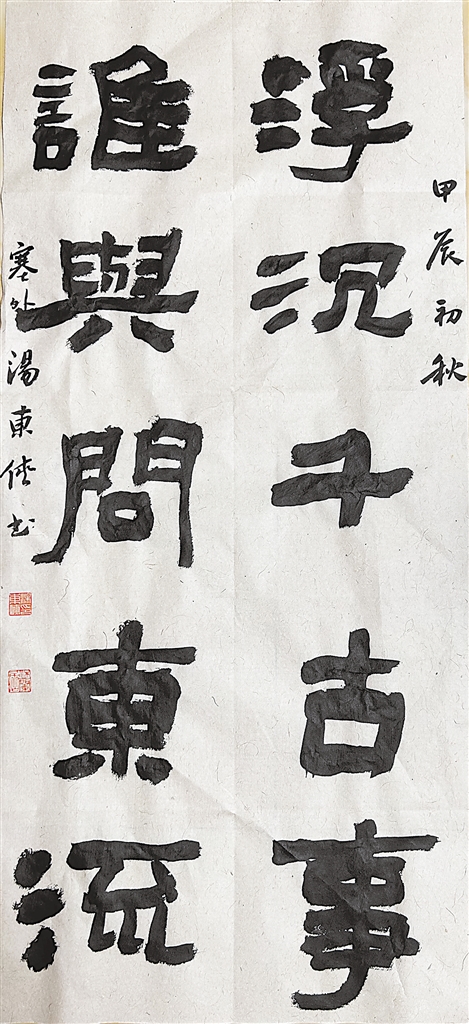 甲辰初秋
浮沉千古事
誰與問東流
塞外湯東俠书